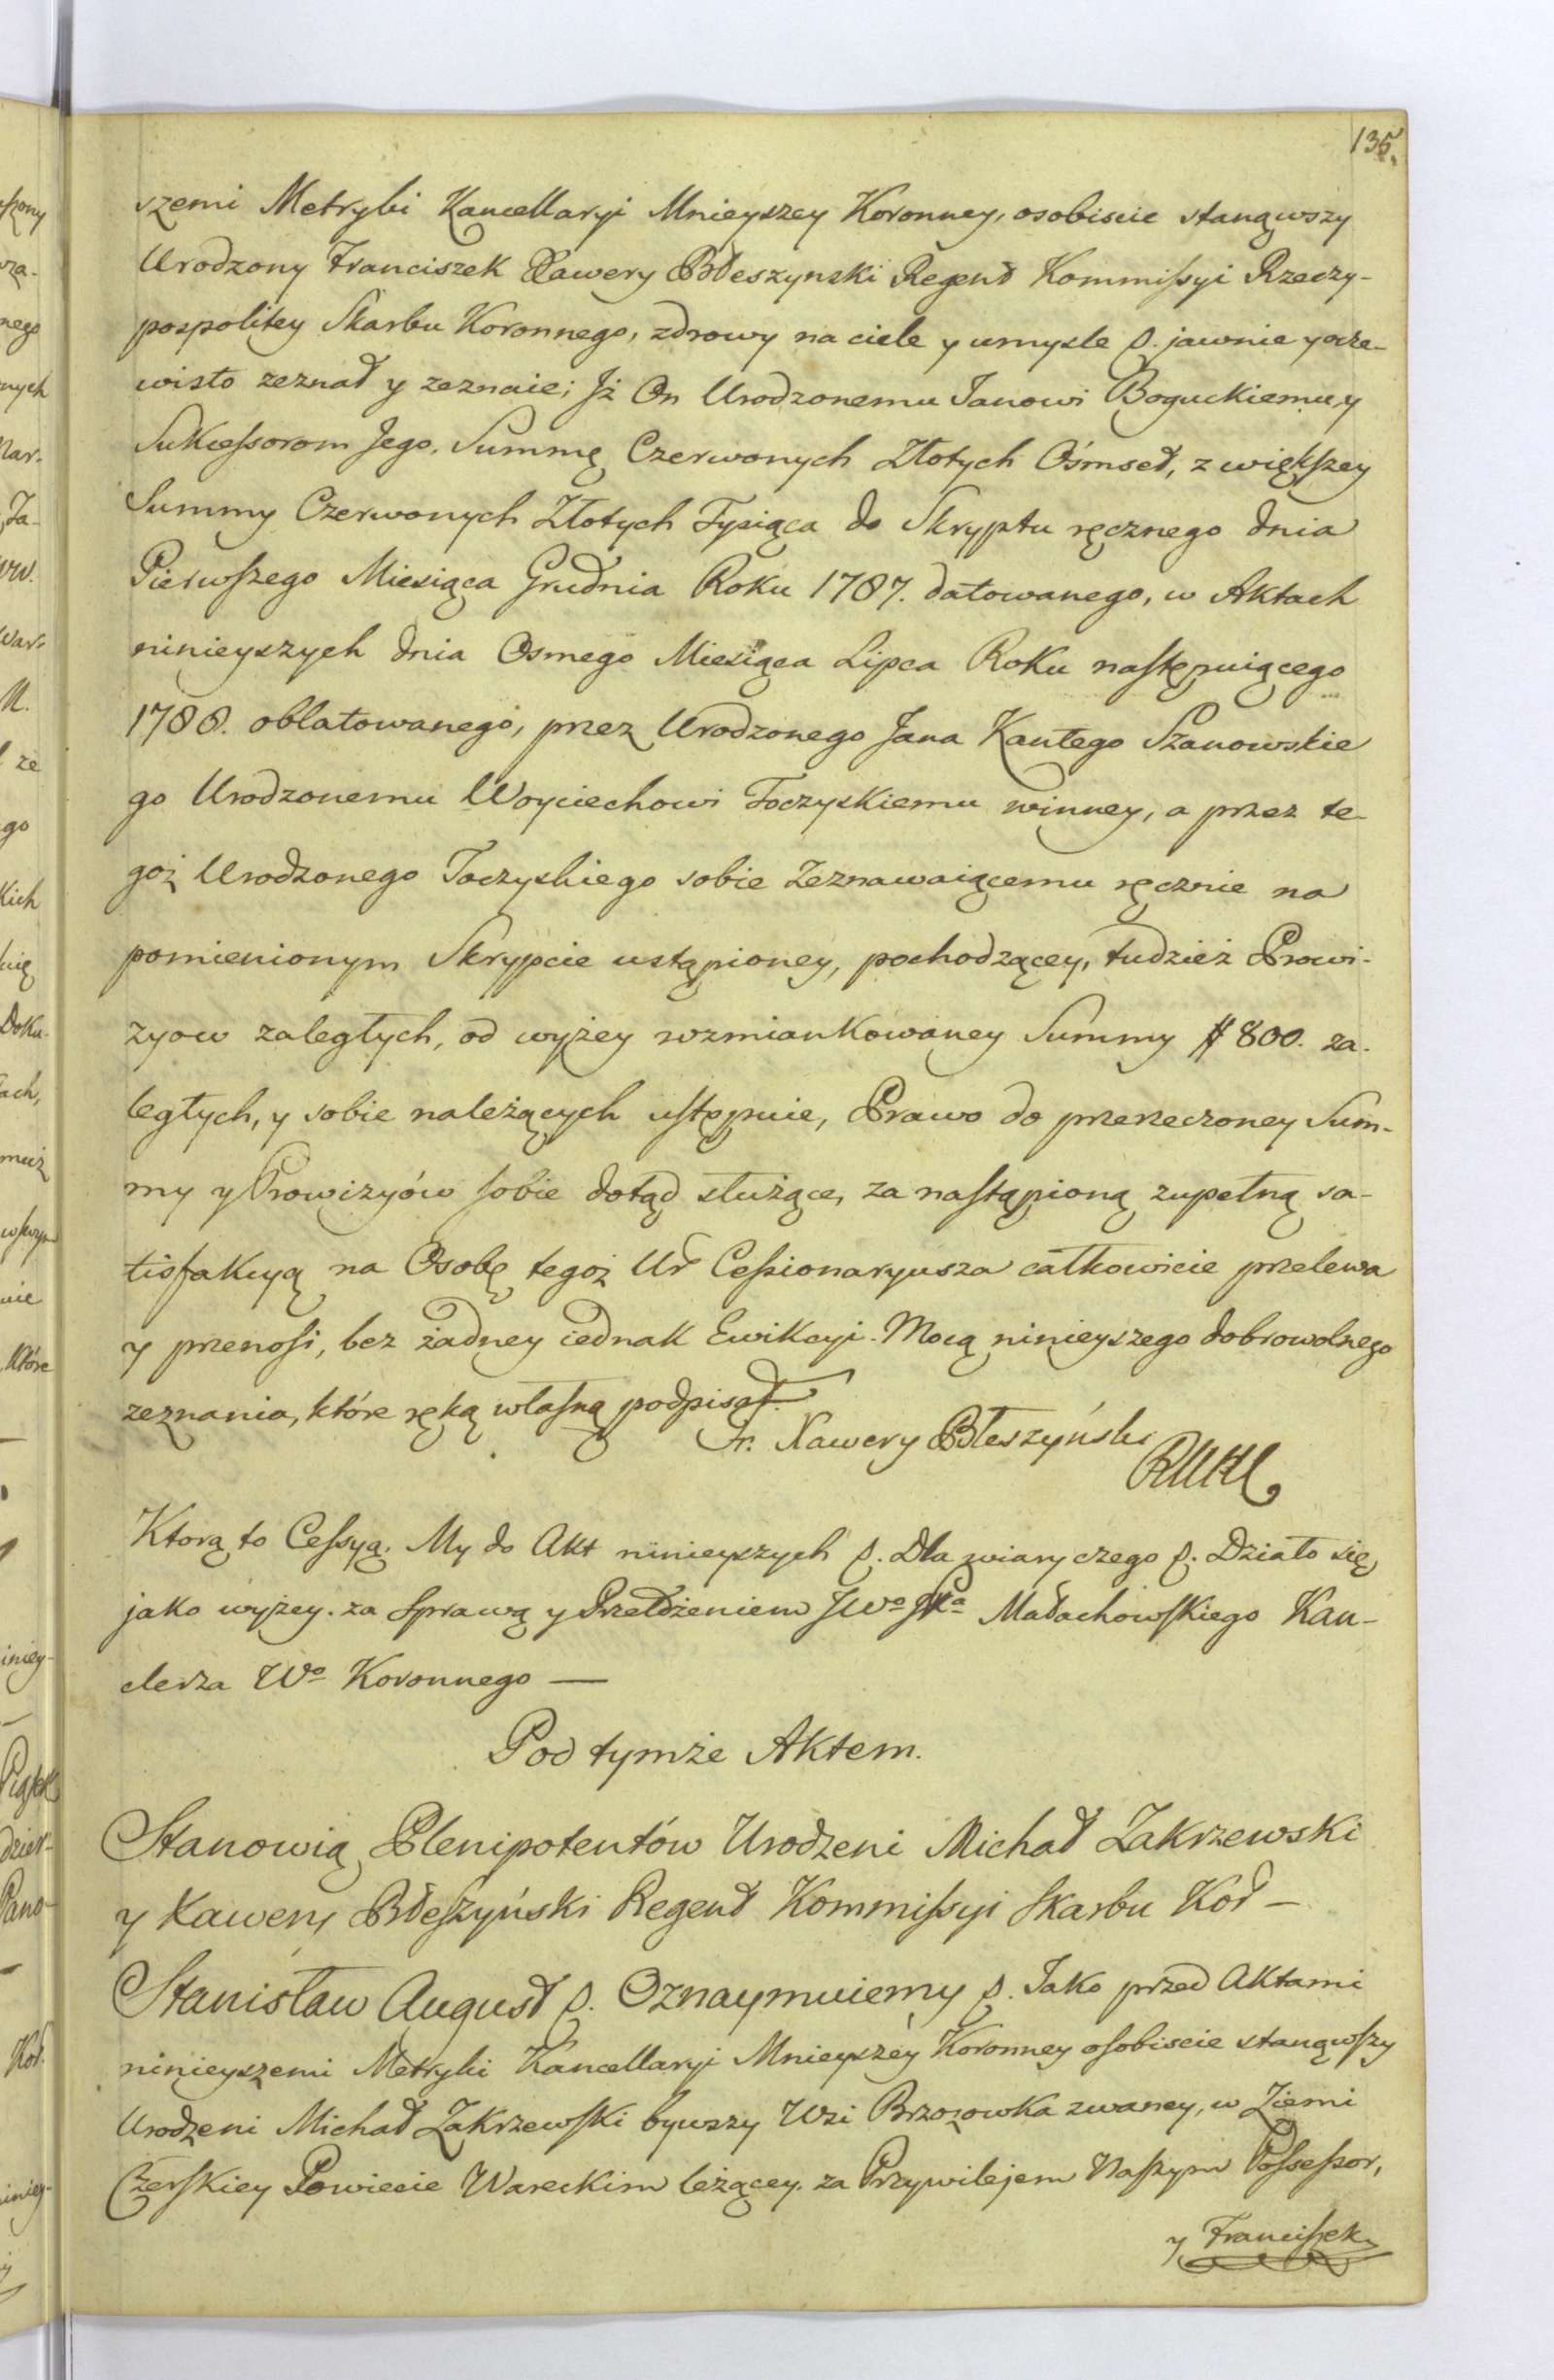 135.
szemi Metryki Kancellaryi Mnieyszey Koronney, osobiscie stanąwszy
Urodzony Franciszek Xawery Błeszynski Regent Kommissyi Rzeczy-
pospolitey Skarbu Koronnego, zdrowy na ciele y umysle p. jawnie y ocze-
wisto zeznał y zeznaie; Jż On Urodzonemu Janowi Boguckiemu, y
Sukcessorom Jego, Summę Czerwonych Złotych Ośmset, z większey
Summy Czerwonych Złotych Tysiąca do Skryptu ręcznego dnia
Pierwszego Miesiąca Grudnia Roku 1787. datowanego, w Aktach
ninieyszych dnia Osmego Miesiąca Lipca Roku następuiącego
1788. oblatowanego, przez Urodzonego Jana Kantego Szanowskie
go Urodzonemu Woyciechowi Toczyskiemu winney, a przez te-
goż Urodzonego Toczyskiego sobie Zeznawaiącemu ręcznie na
pomienionym Skrypcie ustąpioney, pochodzącey, tudzież Prowi-
zyow zaległych, od wyżey wzmiankowaney Summy # 800. za-
ległych, y sobie należących ustępuie, Prawo do przerzeczoney Sum-
my y Prowizyów sobie dotąd służące, za nastąpioną zupełną sa-
tisfakcyą na Osobę tegoż Ur Cessionaryusza całkowicie przelewa
y przenosi, bez żadney iednak Ewikcyi. Mocą ninieyszego dobrowolnego
zeznania, które ręką własną podpisał.
Fr. Xawery Błeszyński
Ktorą to Cessyą, My do Akt ninieyszych p. Dla wiary czego p. Działo się,
jako wyżey. za Sprawą y Przełożeniem JWo JPa Małachowskiego Kan-
clerza Wo Koronnego —
Pod tymże Aktem.
Stanowią Plenipotentów Urodzeni Michał Zakrzewski
y Xawery Błeszyński Regent Kommissyi Skarbu Kor —
Stanisław August p. Oznaymuiemy p. Jako przed Aktami
ninieyszemi Metryki Kancellaryi Mnieyszey Koronney osobiscie stanąwszy
Urodzeni Michał Zakrzewski bywszy Wsi Brzozowka zwaney, w Ziemi
Czerskiey Powiecie Wareckim leżącey. za Przywilejem Naszym Possessor,
y Franciszek